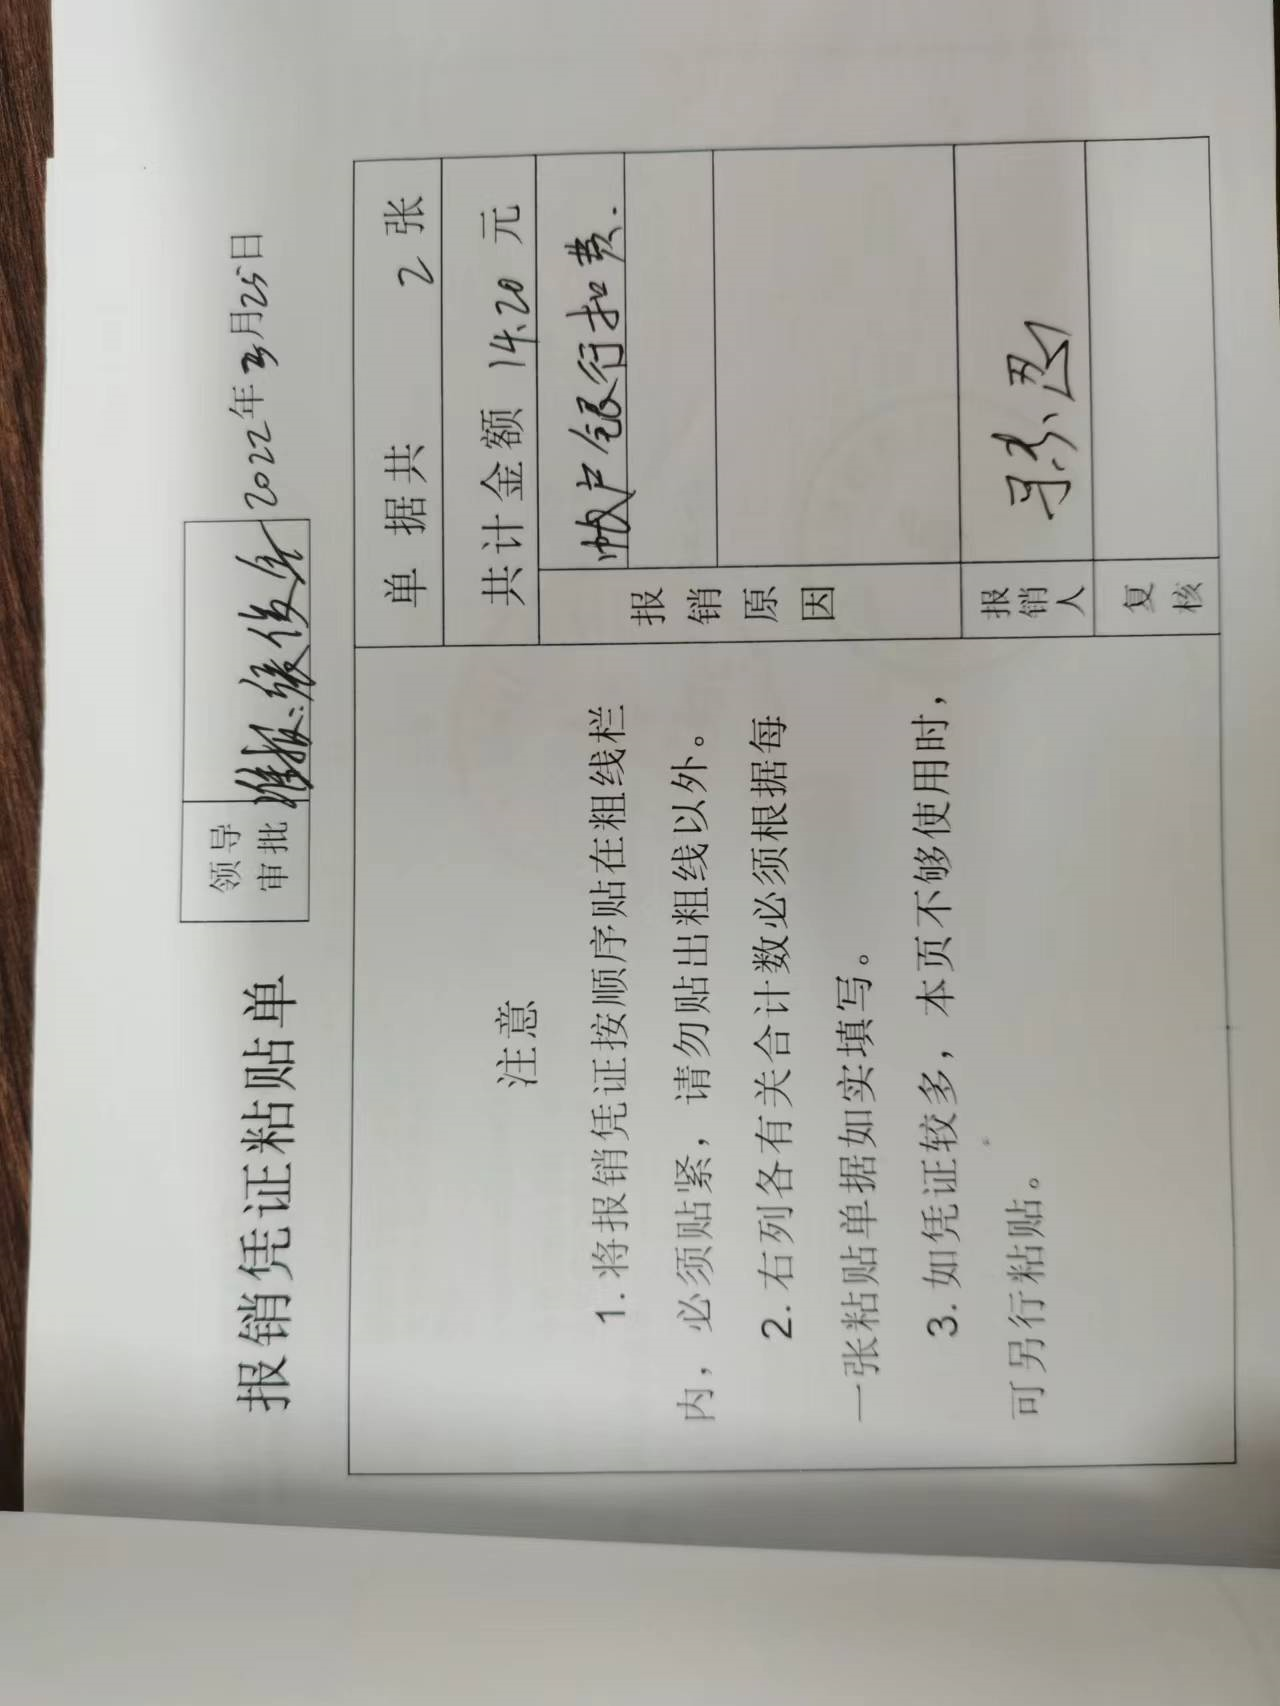 报销凭证粘贴单
领导
审批
准报.
2022年3月25日
注意
1.将报销凭证按顺序贴在粗线栏
内，必须贴紧，请勿贴出粗线以外。
2.右列各有关合计数必须根据每
一张粘贴单据如实填写。
3.如凭证较多，本页不够使用时，
可另行粘贴。
单 据共 2 张
共计金额 14.20 元
报销原因
帐户银行扣费.
报销人
复核